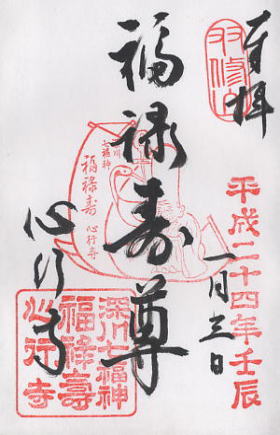 奉拝
双修山
平成二十四年壬辰
一月三日
福禄寿尊
深川
七福神
福禄寿
心行寺
心行寺
深川七福神
福禄壽
心行寺